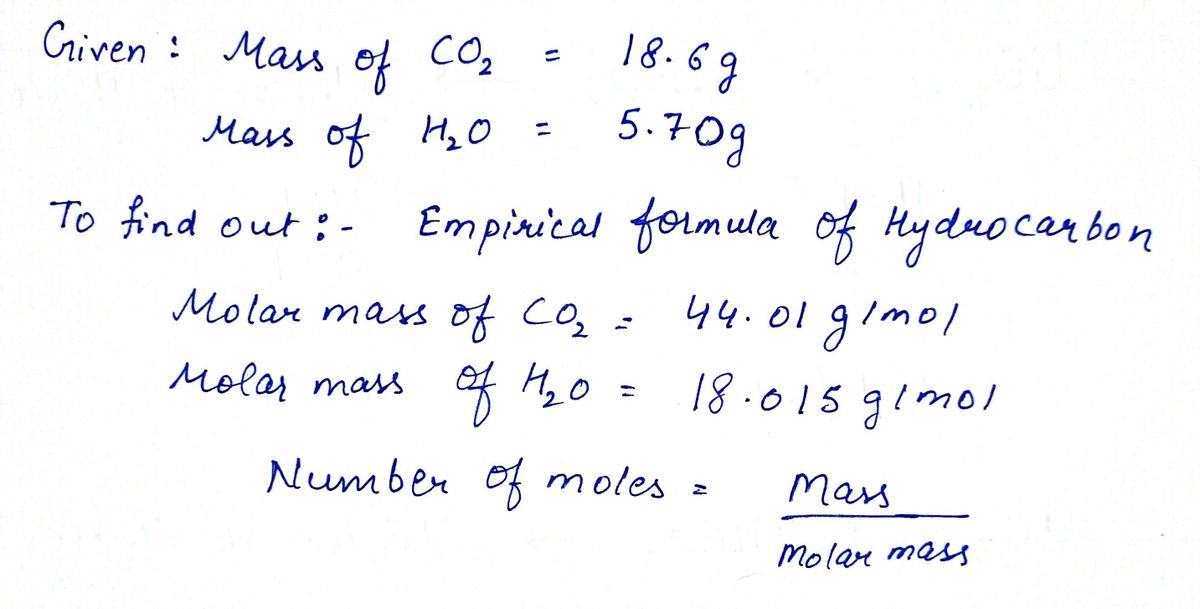 Given : Mass of CO₂ = 18.6g
Mass of H₂O = 5.70g
To find out :- Empirical formula of Hydrocarbon
Molar mass of CO₂ = 44.01 g/mol
Molar mass of H₂O = 18.015 g/mol
Number of moles = Mass
Molar mass